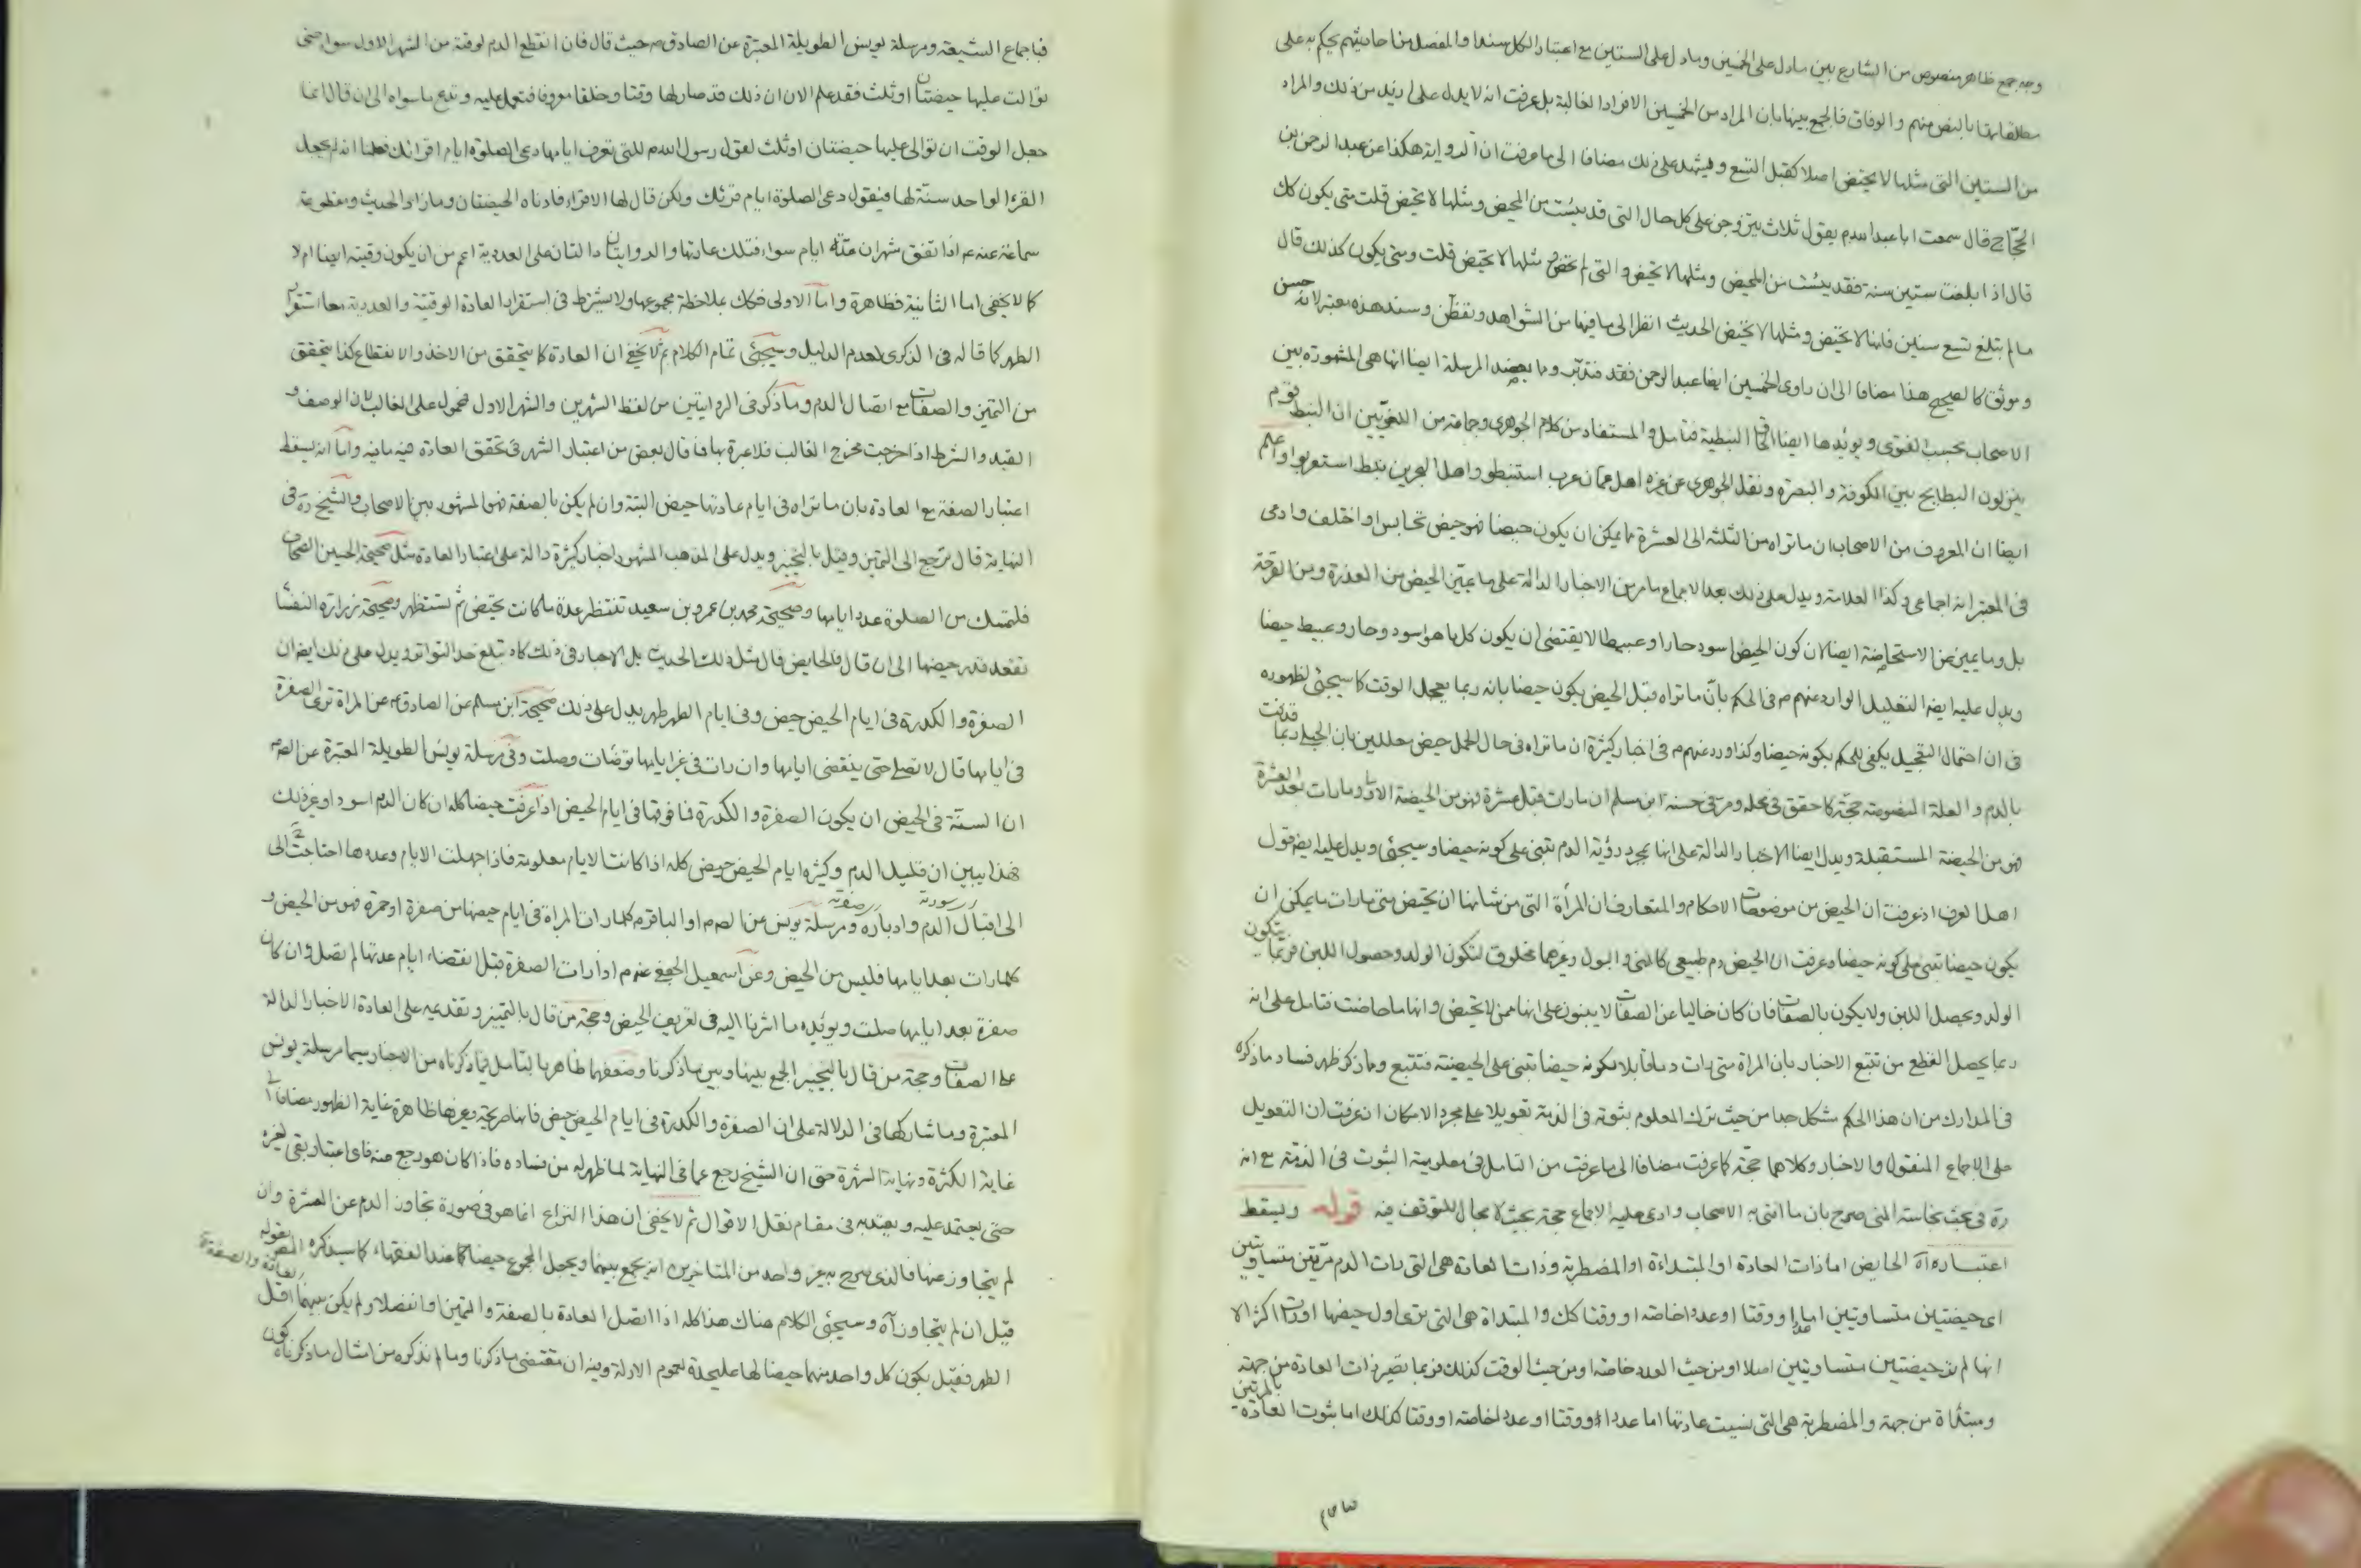 وجه جمع ظاهر منصوص من الشارع بين مادل على الخمسين ومادل على الستين مع اعتبار الكل سندا والمفصل من احاديثهم يحكم به على
مطلقاتها بالنص منهم والوفاق فالجمع بينها بان المراد من الخمسين الافراد الغالبة بل عرفت انه لا يدل على ازيد من ذلك والمراد
من الستين التى مثلها لا يحيض اصلا كقبل التسع ويشهد على ذلك مضافا الى ما عرفت ان الرواية هكذا عن عبد الرحمن بن
الحجاج قال سمعت ابا عبد الله م يقول ثلاث يتزوجن على كل حال التى قد يئست من المحيض ومثلها لا تحيض قلت متى يكون كك
قال اذا بلغت ستين سنة فقد يئست من المحيض ومثلها لا تحيض والتى لم تحض ومثلها لا تحيض قلت ومتى يكون كذلك قال
مالم تبلغ تسع سنين فانها لا تحيض ومثلها لا تحيض الحديث انظر الى ما فيها من الشواهد وتفطن وسند هذه معتبر لانه حسن
وموثق كالصحيح هذا مضافا الى ان راوى الخمسين ايضا عبد الرحمن فقد فتدبر وما يعضد المرسلة ايضا انها هى المشهورة بين
الاصحاب بحسب الفتوى ويؤيدها ايضا النبطية فتامل والمستفاد من كلام الجوهرى وجماعة من اللغويين ان النبط قوم
ينزلون البطايح بين الكوفة والبصرة ونقل الجوهرى عن غيره اهل عمان عرب استنبطوا واهل البحرين نبط استعربوا واعلم
ايضا ان المعروف من الاصحاب ان ما تراه من الثلثة الى العشرة مما يمكن ان يكون حيضا فهو حيض تجانس او اختلف وادعى
فى المعتبر انه اجماعى وكذا العلامة ويدل على ذلك بعد الاجماع ما مر من الاخبار الدالة على ما يميز الحيض من العذرة ومن القرحة
بل وما يميز عن الاستحاضة ايضا لان كون الحيض اسود حارا وعبيطا لا يقتضى ان يكون كل ما هو اسود وحار وعبيط حيضا
ويدل عليه ايضا التعليل الوارد عنهم م فى الحكم بان ما تراه قبل الحيض يكون حيضا بانه ربما يعجل الوقت كما سيجئ لظهوره
فى ان احتمال التعجيل يكفى للحكم بكونه حيضا وكذا ورد عنهم م فى اخبار كثيرة ان ما تراه فى حال الحمل حيض معللين بان الحبلى ربما قذفت
بالدم والعلة المنصوصة حجة كما حقق فى محله ومر فى حسنة ابن مسلم ان ما رات قبل عشرة فهو من الحيضة الاولى وما رات بعد العشرة
فهو من الحيضة المستقبلة ويدل ايضا الاخبار الدالة على انها بمجرد رؤية الدم تبنى على كونه حيضا وسيجئ ويدل عليه ايضا قول
اهل العرف اذ عرفت ان الحيض من موضوعات الاحكام والمتعارف ان المرأة التى من شانها ان تحيض متى مارات ما يمكن ان
يكون حيضا تبنى على كونه حيضا وعرفت ان الحيض دم طبيعى كالمنى والبول وغيرهما مخلوق لتكون الولد وحصول اللبن فربما يتكون
الولد ويحصل اللبن ولا يكون بالصفات فان كان خاليا عن الصفات لا يبنون على انها ممن لا تحيض وانها ما حاضت فتامل على انه
ربما يحصل القطع من تتبع الاخبار بان المراة متى رات دما قابلا لكونه حيضا تبنى على الحيضية فتتبع ومما ذكر ظهر فساد ما ذكره
فى المدارك من ان هذا الحكم مشكل جدا من حيث ترك المعلوم بثبوته فى الذمة تعويلا على مجرد الامكان اذ عرفت ان التعويل
على الاجماع المنقول والاخبار وكلاهما حجة كما عرفت مضافا الى ما عرفت من التامل فى معلومية الثبوت فى الذمة مع انه
ره فى بحث نجاسة المنى صرح بان ما افتى به الاصحاب وادعى عليه الاجماع حجة بحيث لا مجال للتوقف فيه قوله ويسقط
اعتباره اه الحايض اما ذات العادة او المبتداءة او المضطربة وذات العادة هى التى رات الدم مرتين متساويتين
اى حيضتين متساويتين عددا ووقتا او عددا خاصة او وقتا كك والمبتداة هى التى ترى اول حيضها او رات اكثر الا
انها لم تر حيضتين متساويتين اصلا او من حيث العدد خاصة او من حيث الوقت كذلك فربما تصير ذات العادة من جهة
ومبتداة من جهة والمضطربة هى التى نسيت عادتها اما عددا ووقتا او عددا خاصة او وقتا كذلك اما ثبوت العادة بالمرتين
فباجماع الشيعة ومرسلة يونس الطويلة المعتبرة عن الصادق م حيث قال فان انقطع الدم لوقته من الشهر الاول سواء حتى
توالت عليها حيضتان او ثلث فقد علم الان ان ذلك قد صار لها وقتا وخلقا معروفا فتعمل عليه وتدع ما سواه الى ان قال انما
جعل الوقت ان توالى عليها حيضتان او ثلث لقول رسول الله م للتى تعرف ايامها دعى الصلوة ايام اقرائك فعلمنا انه لم يجعل
القرء الواحد سنة لها فيقول دعى الصلوة ايام قرئك ولكن قال لها الاقراء فادناه الحيضتان وما زاد الحديث ومقطوعة
سماعة عنه م اذا اتفق شهران عدة ايام سواء فتلك عادتها والروايتان دالتان على العددية اعم من ان يكون وقتية ايضا ام لا
كما لا يخفى اما الثانية فظاهرة واما الاولى فكك بملاحظة مجموعها ولا يشترط فى استقرار العادة الوقتية والعددية معا استقرار
الطهر كما قاله فى الذكرى لعدم الدليل وسيجئ تمام الكلام ثم لا يخفى ان العادة كما يتحقق من الاخذ والانقطاع كذا يتحقق
من التميز والصفات مع اتصال الدم وما ذكر فى الروايتين من لفظ الشهرين والشهر الاول فمحمول على الغالب لان الوصف و
القيد والشرط اذا خرجت مخرج الغالب فلا عبرة بها فما قال بعض من اعتبار الشهر فى تحقق العادة فيه ما فيه واما انه يسقط
اعتبار الصفة مع العادة بان ما تراه فى ايام عادتها حيض البتة وان لم يكن بالصفة فهو المشهور بين الاصحاب والشيخ ره فى
النهاية قال ترجع الى التميز وقيل بالتخيير ويدل على المذهب المشهور اخبار كثيرة دالة على اعتبار العادة مثل صحيحة الحسين الصحاف
فلتمسك عن الصلوة عدد ايامها وصحيحة محمد بن عمرو بن سعيد تنتظر عدة ما كانت تحيض ثم تستظهر وصحيحة زرارة النفساء
تقعد قدر حيضها الى ان قال فالحايض قال مثل ذلك الحديث بل الاخبار فى ذلك كاد تبلغ حد التواتر ويدل على ذلك ايضا ان
الصفرة والكدرة فى ايام الحيض حيض وفى ايام الطهر طهر يدل على ذلك صحيحة ابن مسلم عن الصادق م عن المراة ترى الصفرة
فى ايامها قال لا تصلى حتى ينقضى ايامها وان رات فى غير ايامها توضات وصلت وفى مرسلة يونس الطويلة المعتبرة عن الصم
ان السنة فى الحيض ان يكون الصفرة والكدرة فما فوقها فى ايام الحيض اذا عرفت حيضا كله ان كان الدم اسود او غير ذلك
فهذا يبين ان قليل الدم وكثيره ايام الحيض حيض كله اذا كانت الايام معلومة فاذا جهلت الايام وعددها احتاجت الى
الى اقبال الدم وادباره ومرسلة يونس عن الصم او الباقر م كلما رات المراة فى ايام حيضها من صفرة او حمرة فهو من الحيض و
كلما رات بعد ايامها فليس من الحيض وعن اسمعيل الجعفى عنه م اذا رات الصفرة قبل انقضاء ايام عدتها لم تصل وان كان
صفرة بعد ايامها صلت ويؤيده ما اشرنا اليه فى تعريف الحيض وحجة من قال بالتميز وتقديمه على العادة الاخبار الدالة
على الصفات وحجة من قال بالتخيير الجمع بينها وبين ما ذكرنا وضعفهما ظاهر بالتامل فيما ذكرناه من الاخبار سيما مرسلة يونس
المعتبرة وما شاركها فى الدلالة على ان الصفرة والكدرة فى ايام الحيض حيض فانها صريحة وغيرها ظاهرة غاية الظهور مضافا الى
غاية الكثرة ونهاية الشهرة حتى ان الشيخ رجع عما فى النهاية لما ظهر له من فساده فاذا كان هو رجع عنه فاى اعتبار بقى لغيره
حتى يعتمد عليه ويعتد به فى مقام نقل الاقوال ثم لا يخفى ان هذا النزاع انما هو فى صورة تجاوز الدم عن العشرة وان
لم يتجاوز عنها فالذى صرح به غير واحد من المتاخرين انه يجمع بينهما ويجعل المجموع حيضا كما عند الفقهاء كما سيذكره المص بقوله
قيل ان لم يتجاوز اه وسيجئ الكلام هناك هذا كله اذا اتصل العادة بالصفة والتميز او انفصلا ولم يكن بينهما اقل
الطهر فقيل يكون كل واحد منهما حيضا لها عليحدة لعموم الادلة وفيه ان مقتضى ما ذكرنا وما لم نذكره من امثال ما ذكرناه كون